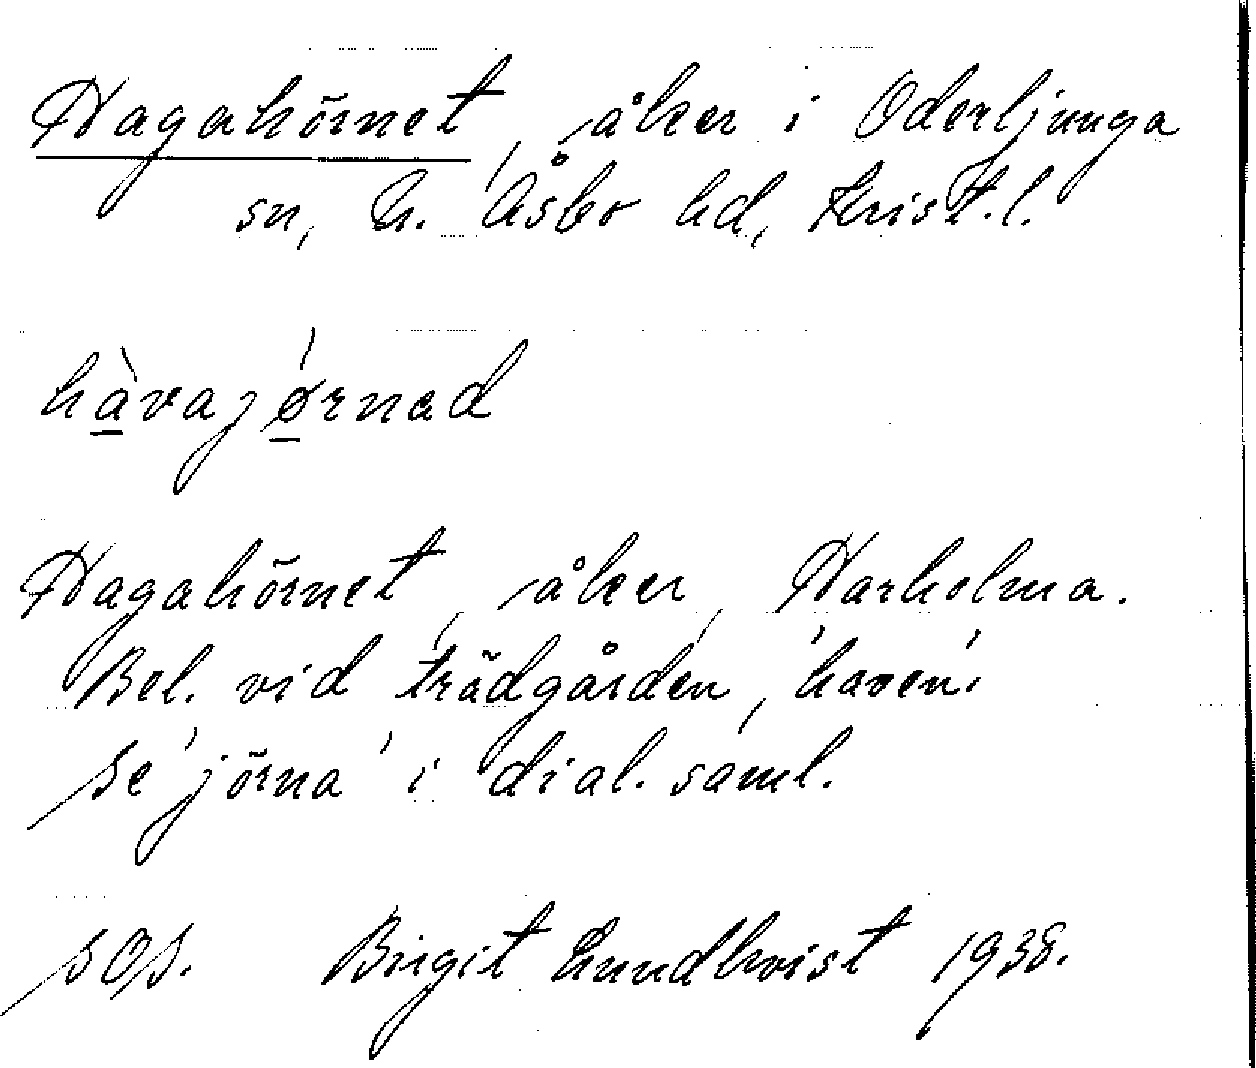 Hagahörnet, åker i Oderljunga
sn, N. Åsbo hd, Krist.l.
hàvajǿrnad
Hagahörnet, åker, Harholma.
Bel. vid trädgården, 'haven'.
Se 'jörna' i dial. saml.
SOS. Birgit Lundkvist 1938.